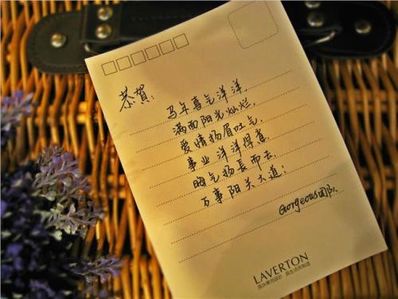 恭賀:
马年喜气洋洋,
满面阳光灿烂,
爱情扬眉吐气,
事业洋洋得意,
晦气扬長而去,
万事阳关大道!
Gorgeous团队
LAVERTON